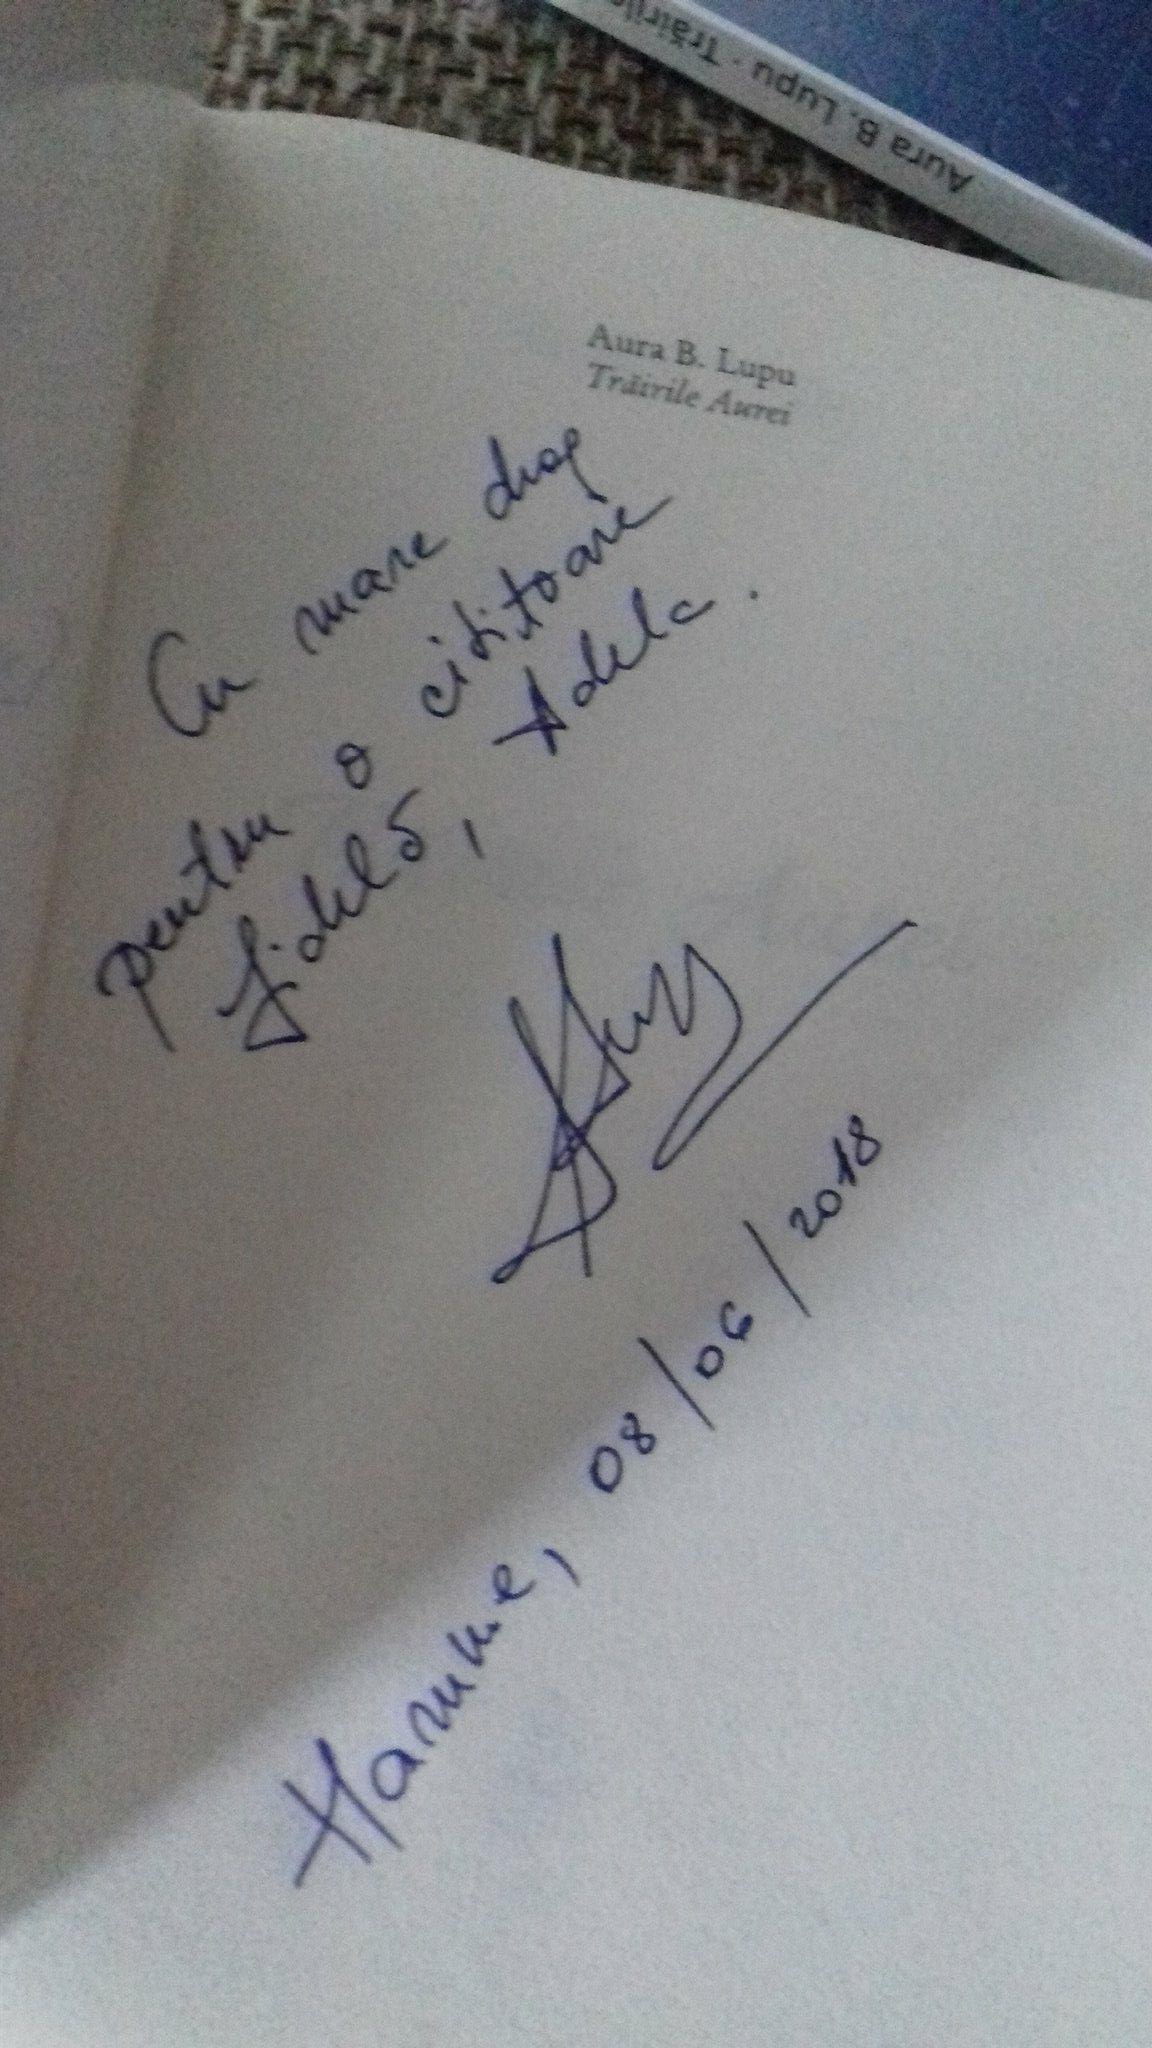 Aura B. Lupu · Trăirile
Aura B. Lupu
Trăirile Aurei
Cu mare drag
pentru o cititoare
fidelă, Adela.
08/06/2018